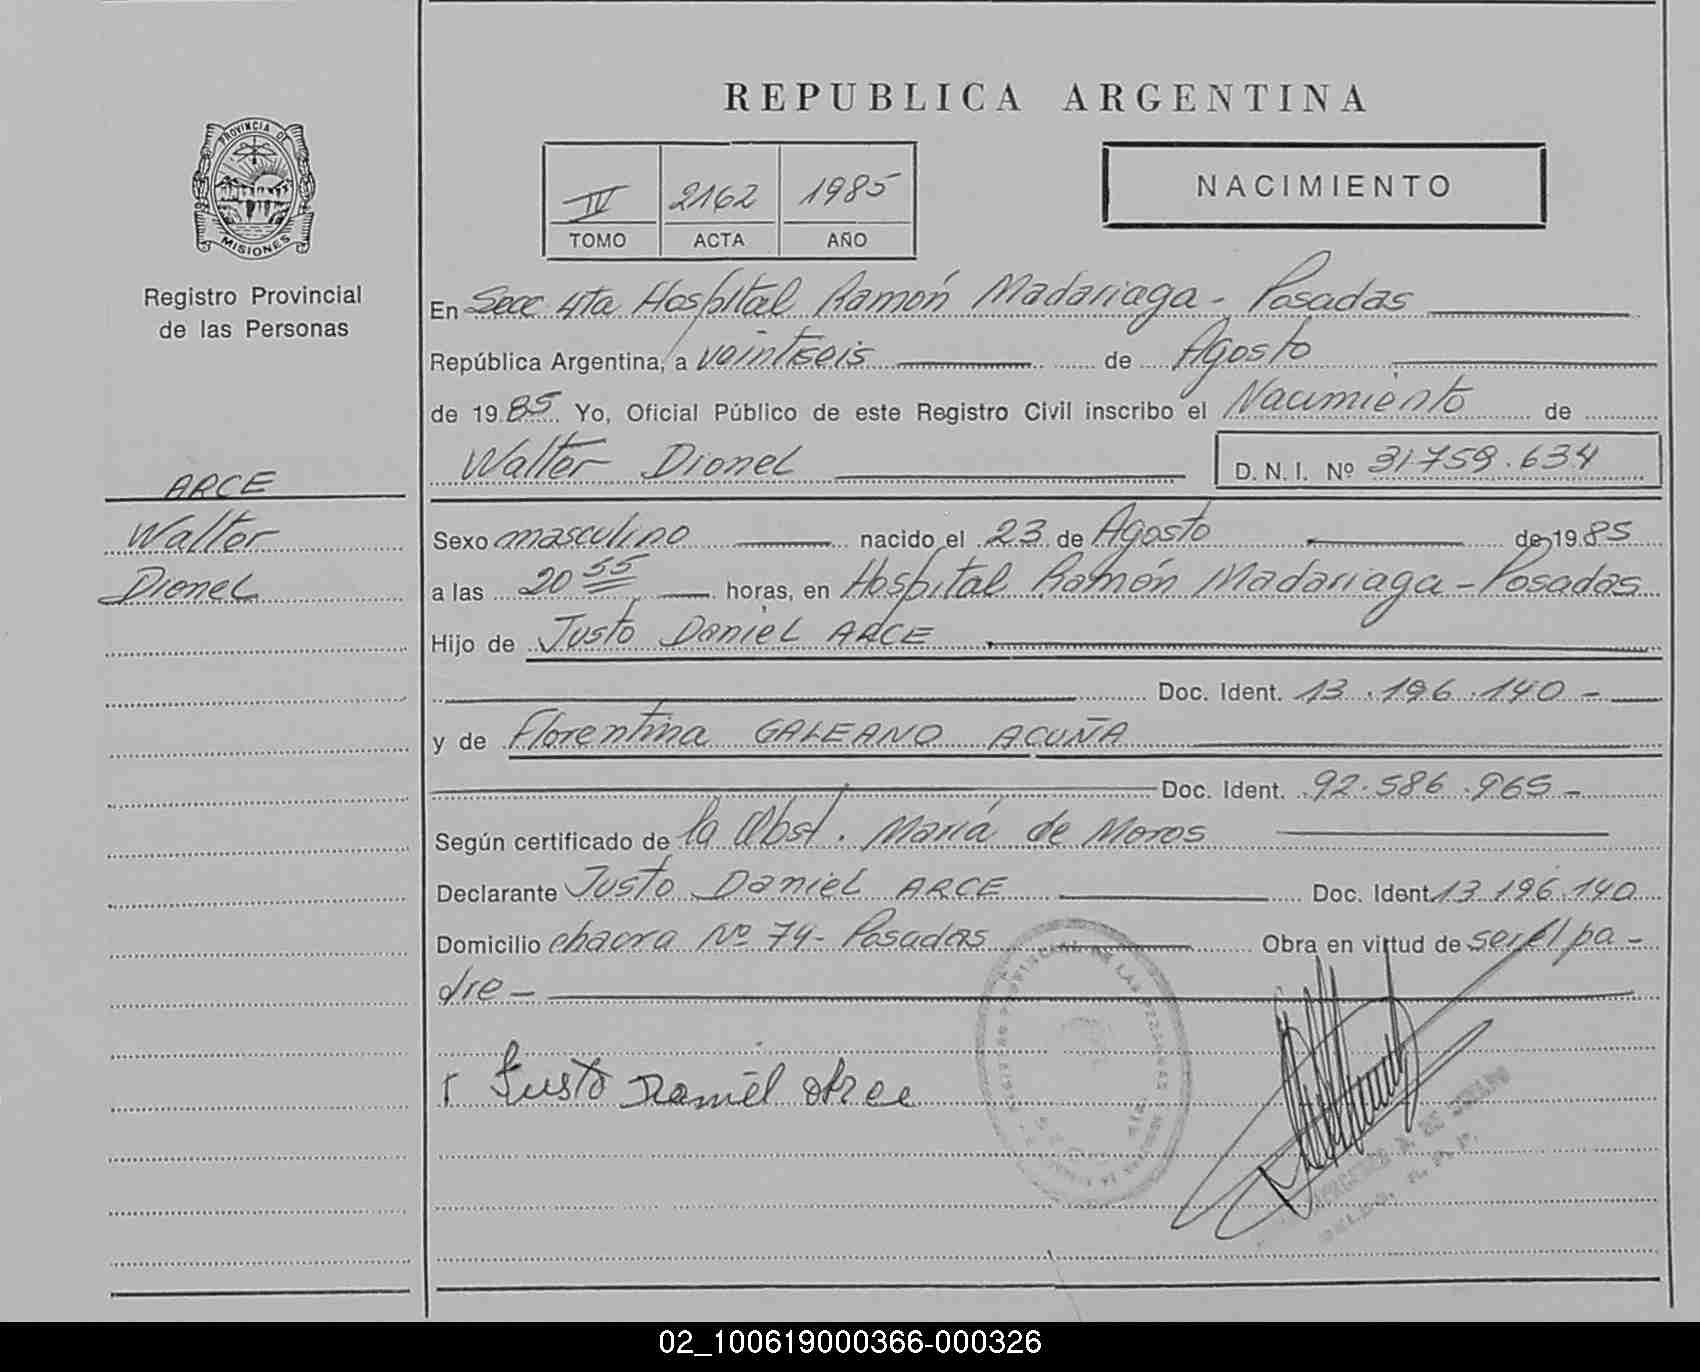 REPUBLICA ARGENTINA
PROVINCIA DE
MISIONES
Registro Provincial
de las Personas
IV 2162 1985
TOMO ACTA AÑO
NACIMIENTO
En Secc 4ta Hospital Ramón Madariaga - Posadas
República Argentina, a veintiseis de Agosto
de 1985 Yo, Oficial Público de este Registro Civil inscribo el Nacimiento de
Walter Dionel D. N. I. Nº 31.759.634
ARCE
Walter
Dionel
Sexo masculino nacido el 23 de Agosto de 1985
a las 20 55 horas, en Hospital Ramón Madariaga - Posadas
Hijo de Justo Daniel ARCE
Doc. Ident. 13.196.140 -
y de Florentina GALEANO ACUÑA
Doc. Ident. 92.586.965 -
Según certificado de la Obst. María de Moros
Declarante Justo Daniel ARCE Doc. Ident. 13.196.140
Domicilio chacra Nº 74 - Posadas Obra en virtud de ser el pa -
dre -
Justo Daniel Arce
02_100619000366-000326